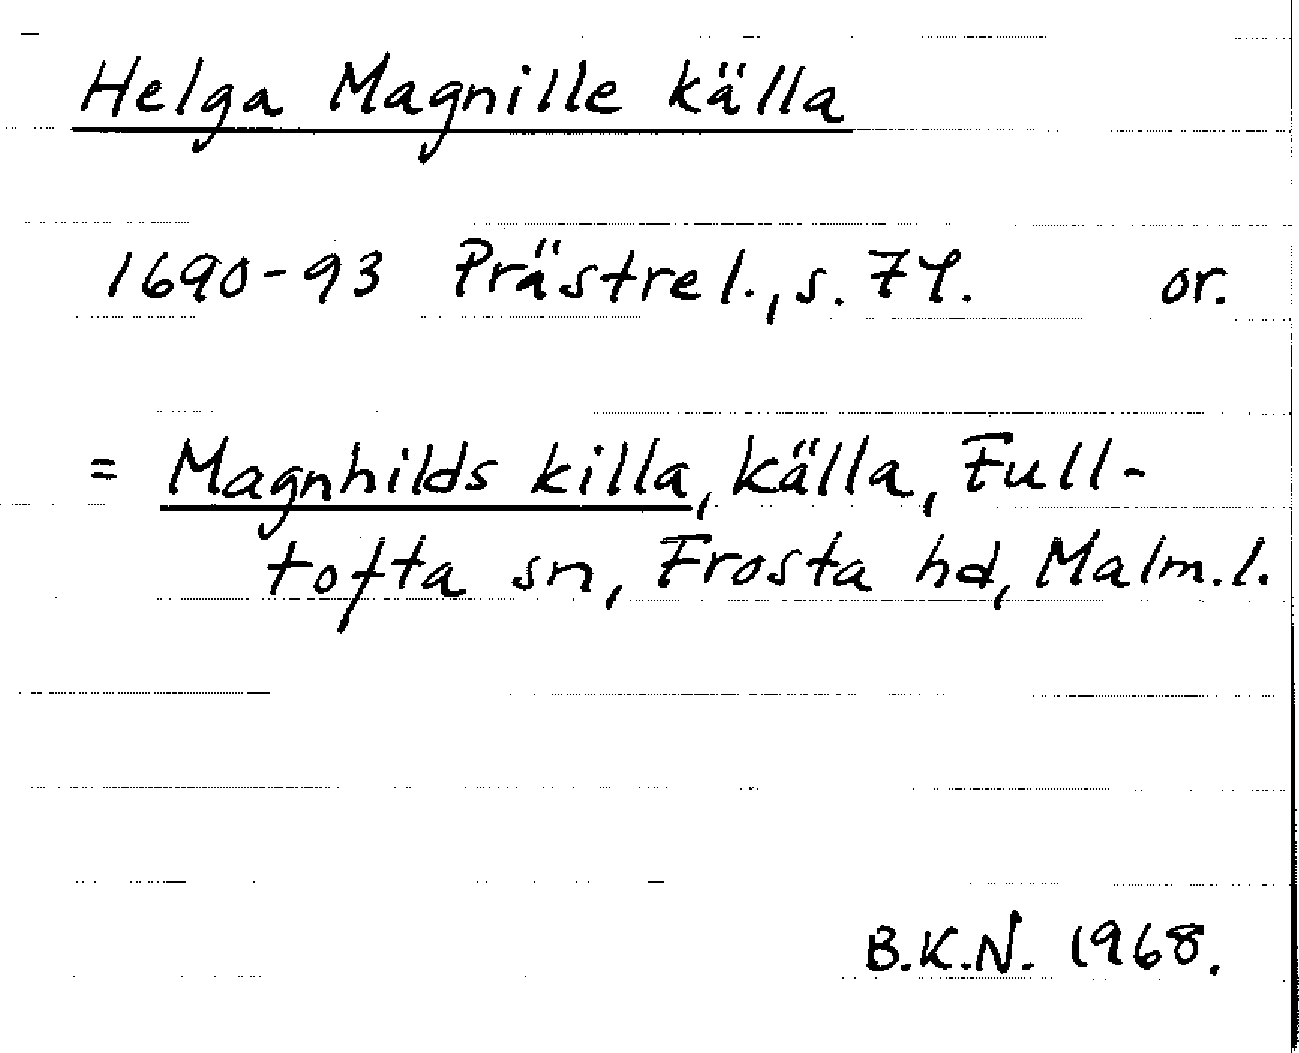 Helga Magnille källa
1690-93 Prästrel., s. 74. or.
= Magnhilds killa, källa, Full-
tofta sn, Frosta hd, Malm. l.
B.K.N. 1968.